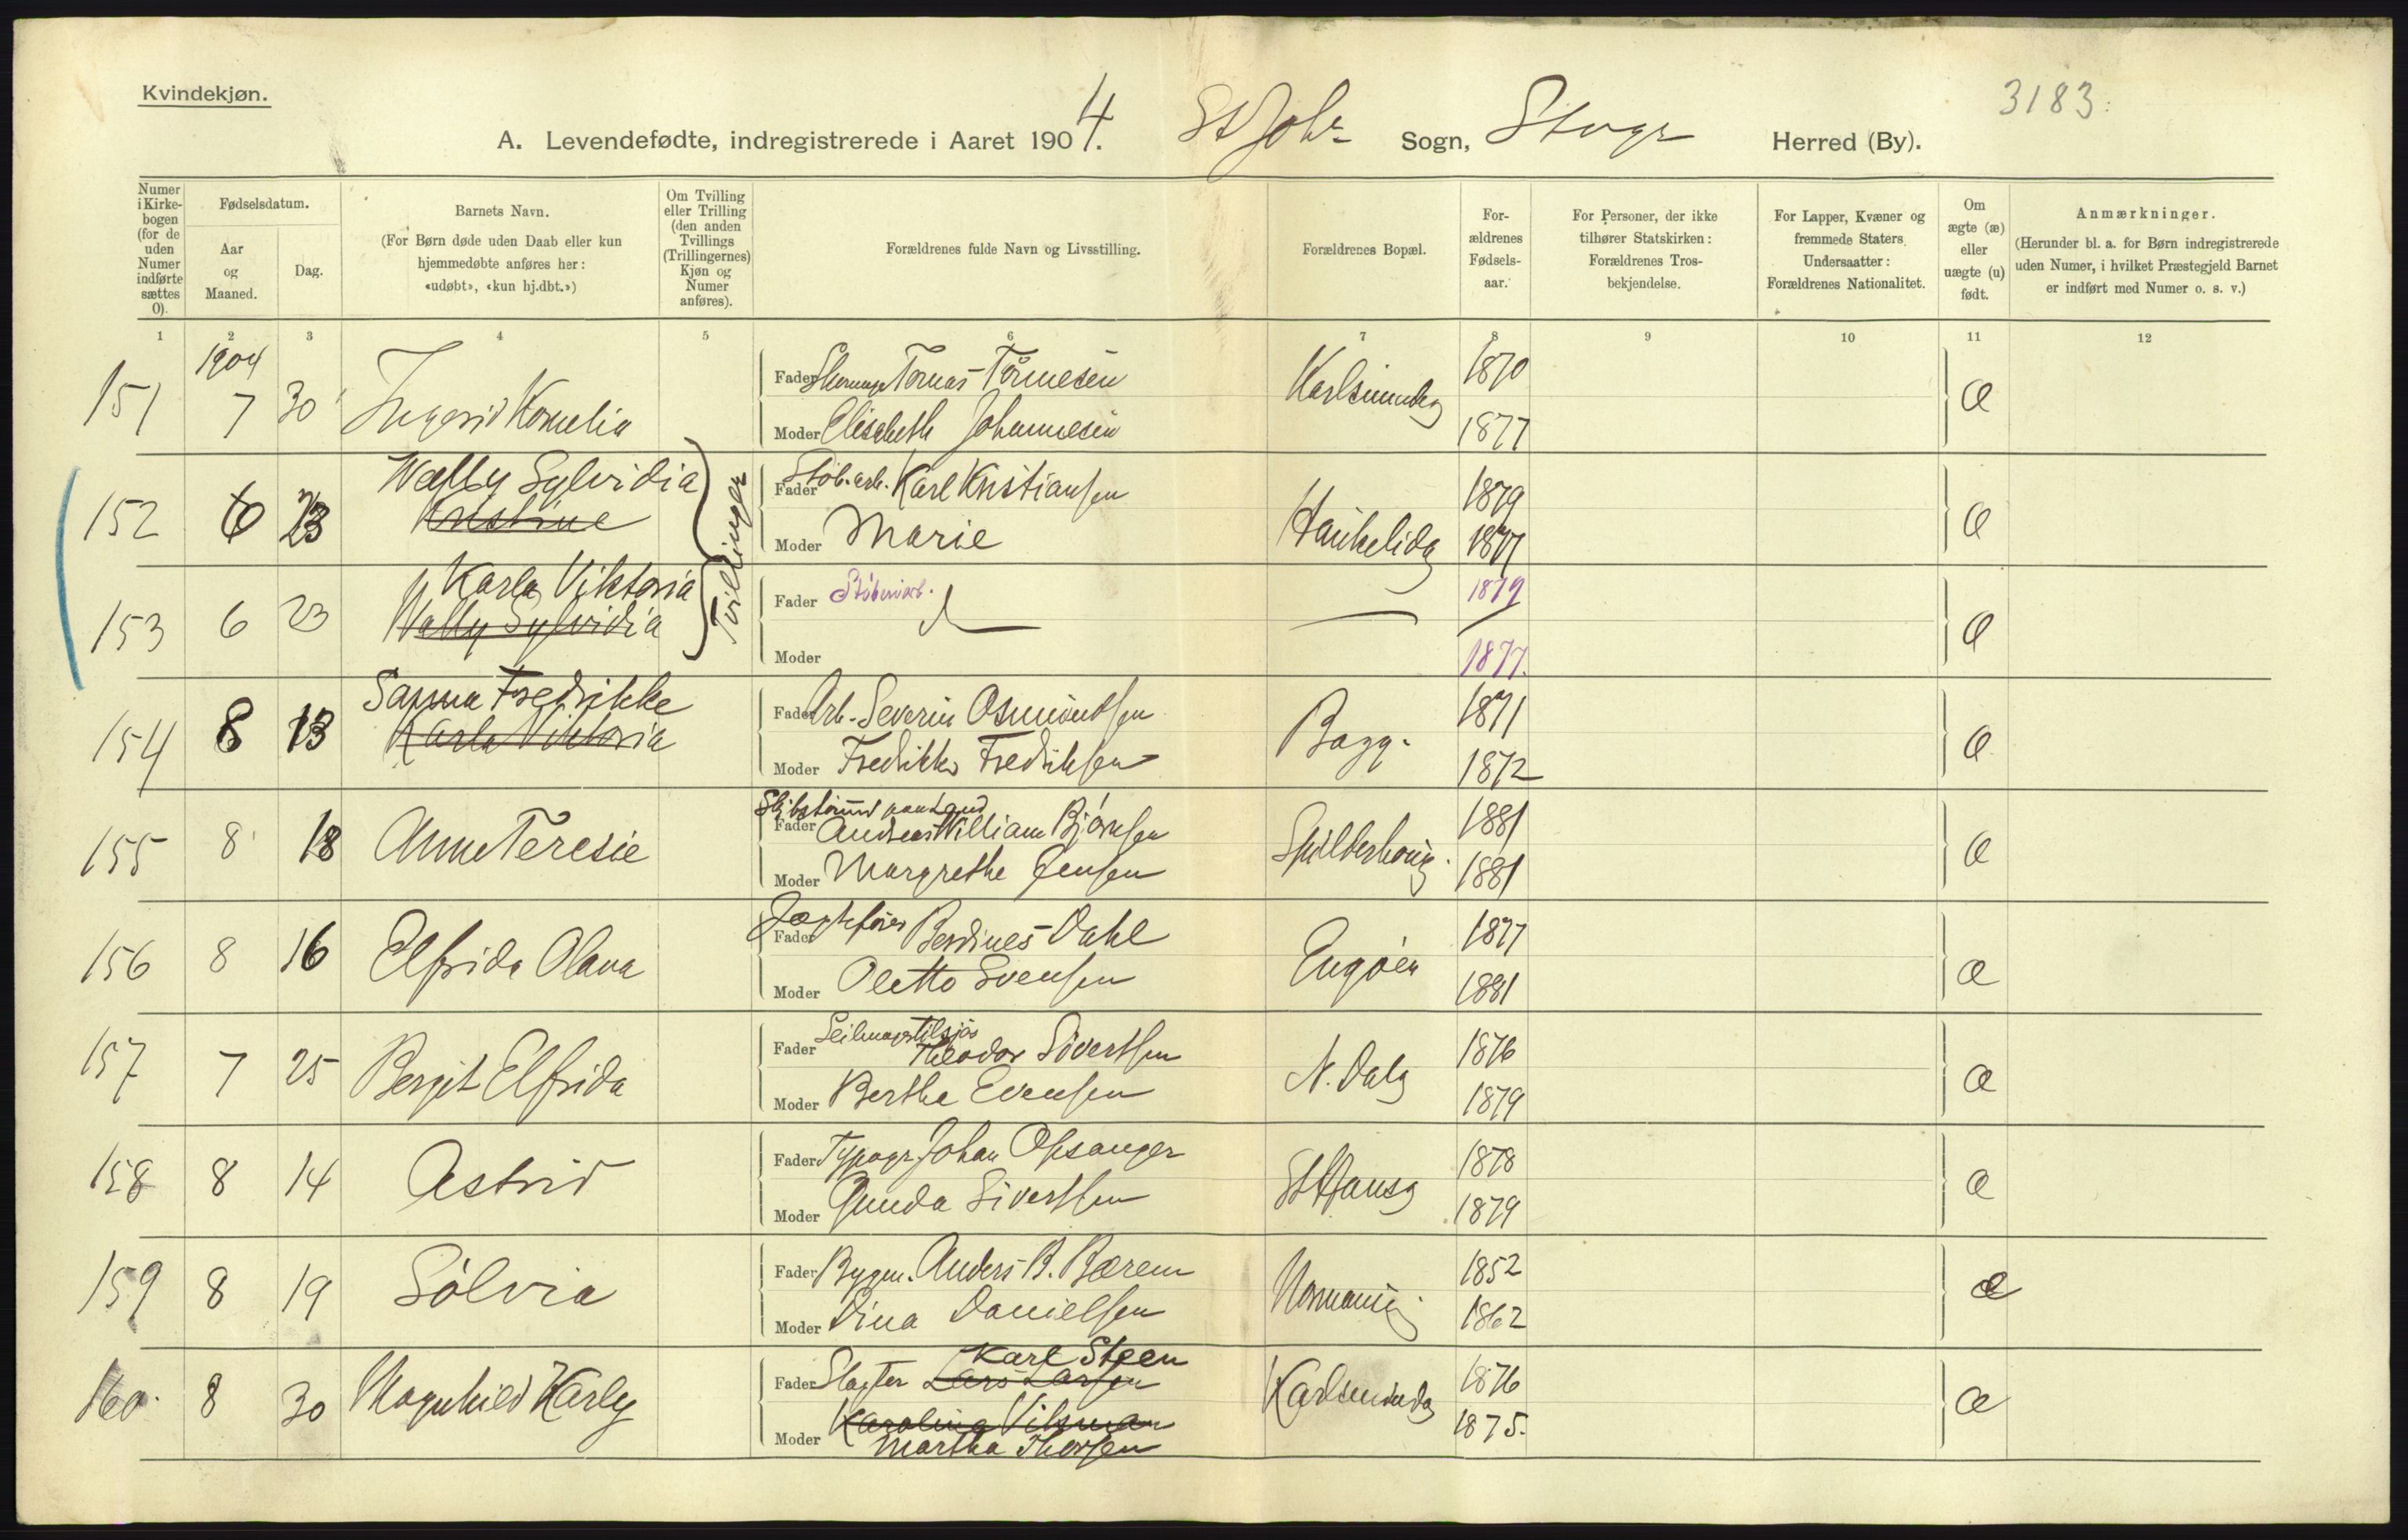 Kvindekjøn.
3183.
A. Levendefødte, indregistrerede i Aaret 1904. St Johs Sogn, Stvgr Herred (By).
Numer i Kirke- bogen (for de uden Numer indførte sættes 0).
Fødselsdatum.
Aar og Maaned.
Dag.
Barnets Navn.
(For Børn døde uden Daab eller kun
hjemmedøbte anføres her:
«udøbt», «kun hj.dbt.»)
Om Tvilling eller Trilling (den anden Tvillings (Trillingernes) Kjøn og Numer anføres).
Forældrenes fulde Navn og Livsstilling.
Forældrenes Bopæl.
For- ældrenes Fødsels- aar.
For Personer, der ikke tilhører Statskirken: Forældrenes Tros- bekjendelse.
For Lapper, Kvæner og fremmede Staters Undersaatter: Forældrenes Nationalitet.
Om ægte (æ) eller uægte (u) født.
Anmærkninger.
(Herunder bl. a. for Børn indregistrerede
uden Numer, i hvilket Præstegjeld Barnet
er indført med Numer o. s. v.)
1 2 3 4 5 6 7 8 9 10 11 12
1904
151 7 30 Ingerid Kornelia
Fader Tomas Tönnesen Karlsmindeg 1870 æ
Moder Elisabeth Johannesen 1877
152 6 23 Wally Sylvidia
Kristine
Tvillinger
Fader Støb.arb. Karl Kristiansen Haukelidg 1879 æ
Moder Marie 1877
153 6 23 Karla Viktoria
Wally Sylvidia
Fader Støberiarb. 1879 æ
Moder 1877.
154 8 13 Sanna Fredrikke
Karla Viktoria
Fader Arb. Severin Osmundsen Bagg. 1871 æ
Moder Fredrikke Fredriksen 1872
155 8 18 Anna Teresie
Fader Andreas William Bjørnsen 1881 æ
Moder Margrethe Jensen 1881
156 8 16 Elfrida Olava
Fader Jægtefører Berdines Dahl Engøen 1877 æ
Moder Olette Svensen 1881
157 7 25 Bergit Elfrida
Fader Seilmager tilsjøs
Theodor Sivertsen N. Dalg 1876 æ
Moder Berthe Evensen 1879
158 8 14 Astrid
Fader Typogr. Johan Opsanger St Hansg 1878 æ
Moder Gunda Sivertsen 1879
159 8 19 Sólvia
Fader Bygm. Anders B. Bærem 1852 æ
Moder Dina Danielsen 1862
160. 8 30 Magnhild Karly
Karl Steen
Fader Slagter Lars Larsen Karlsmindeg 1876 æ
Moder Karoline Vilsman 1875.
Martha Thorsen